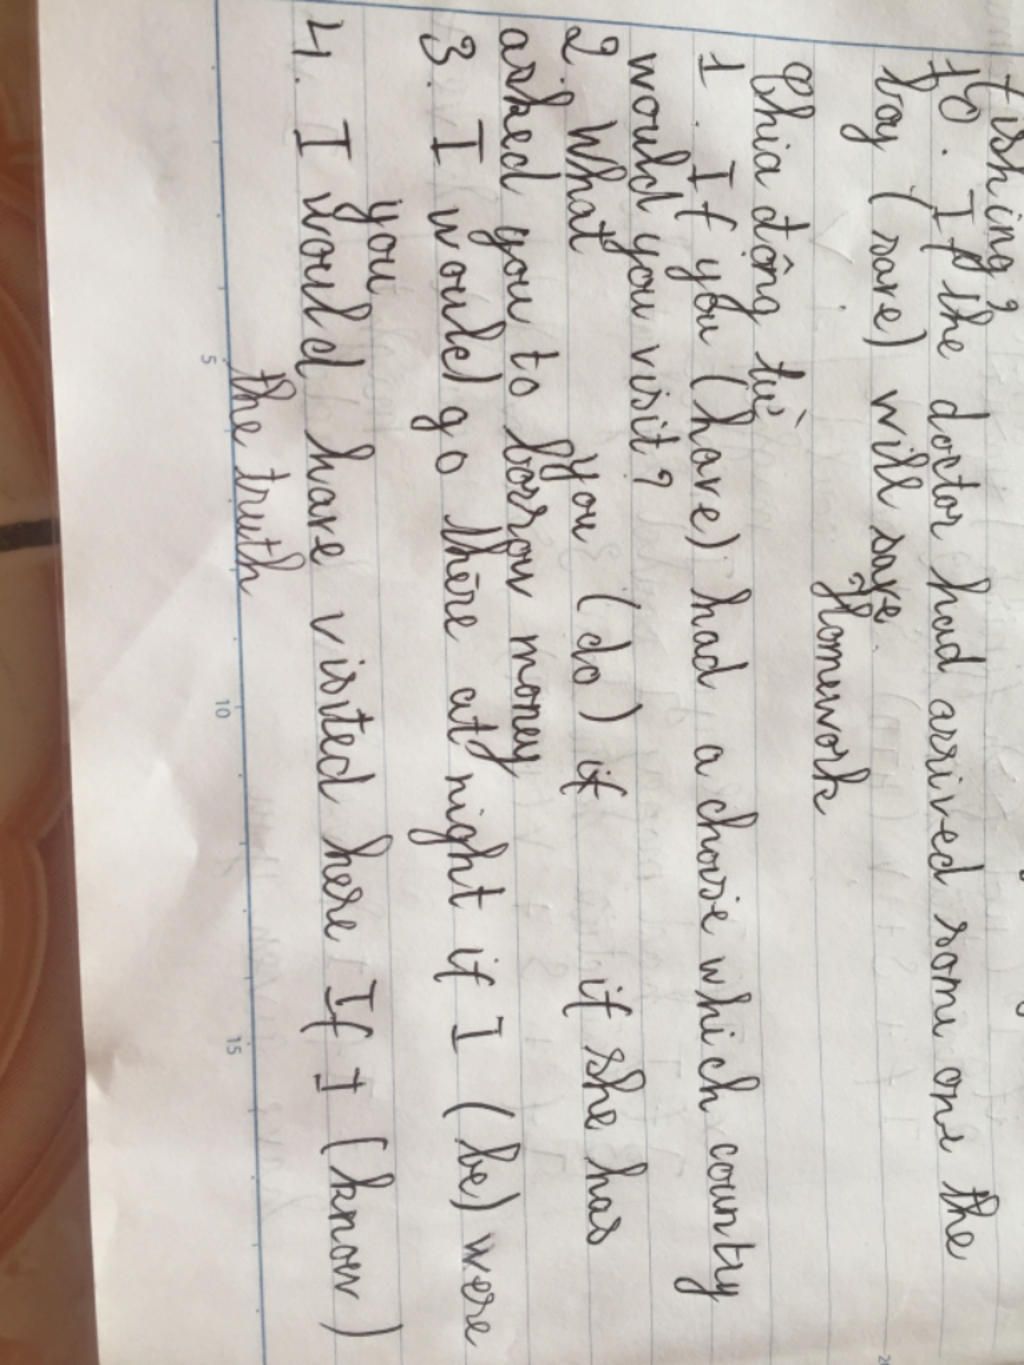 fishing?
10. If the doctor had arrived some one the
boy (save) will save
Homework
Chia động từ
1. If you (have) had a choose which country
would you visit?
2. What you (do) if if she has
asked you to borrow money
3. I would go there at night if I (be) were
you
4. I would have visited here If I (know)
the truth
5 10 15